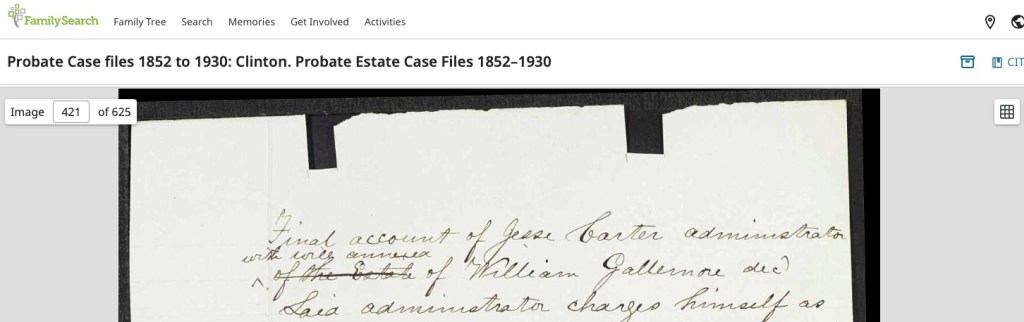 FamilySearch Family Tree Search Memories Get Involved Activities
Probate Case files 1852 to 1930: Clinton. Probate Estate Case Files 1852–1930
CIT
Image 421 of 625
Final account of Jesse Carter administrator
with will annexed
^ of the Estate of William Gallemore decd
Said administrator charges himself as